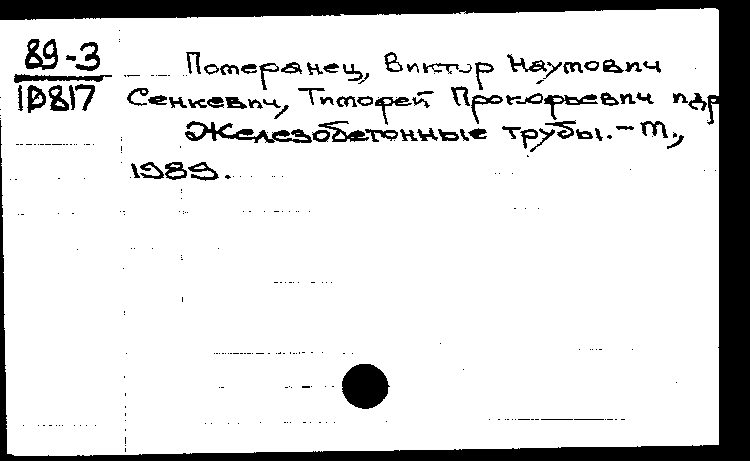 89-3
10817
Потерянец, Виктор Наумович
Сенкевич, Тимофей Прокорьевич и др
Железобетонные трубы.-М.,
1989.